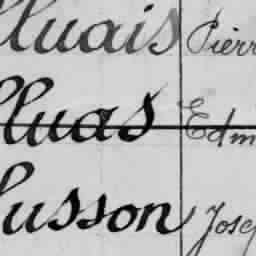 lluais Pierr
lluas Edm
usson Josep